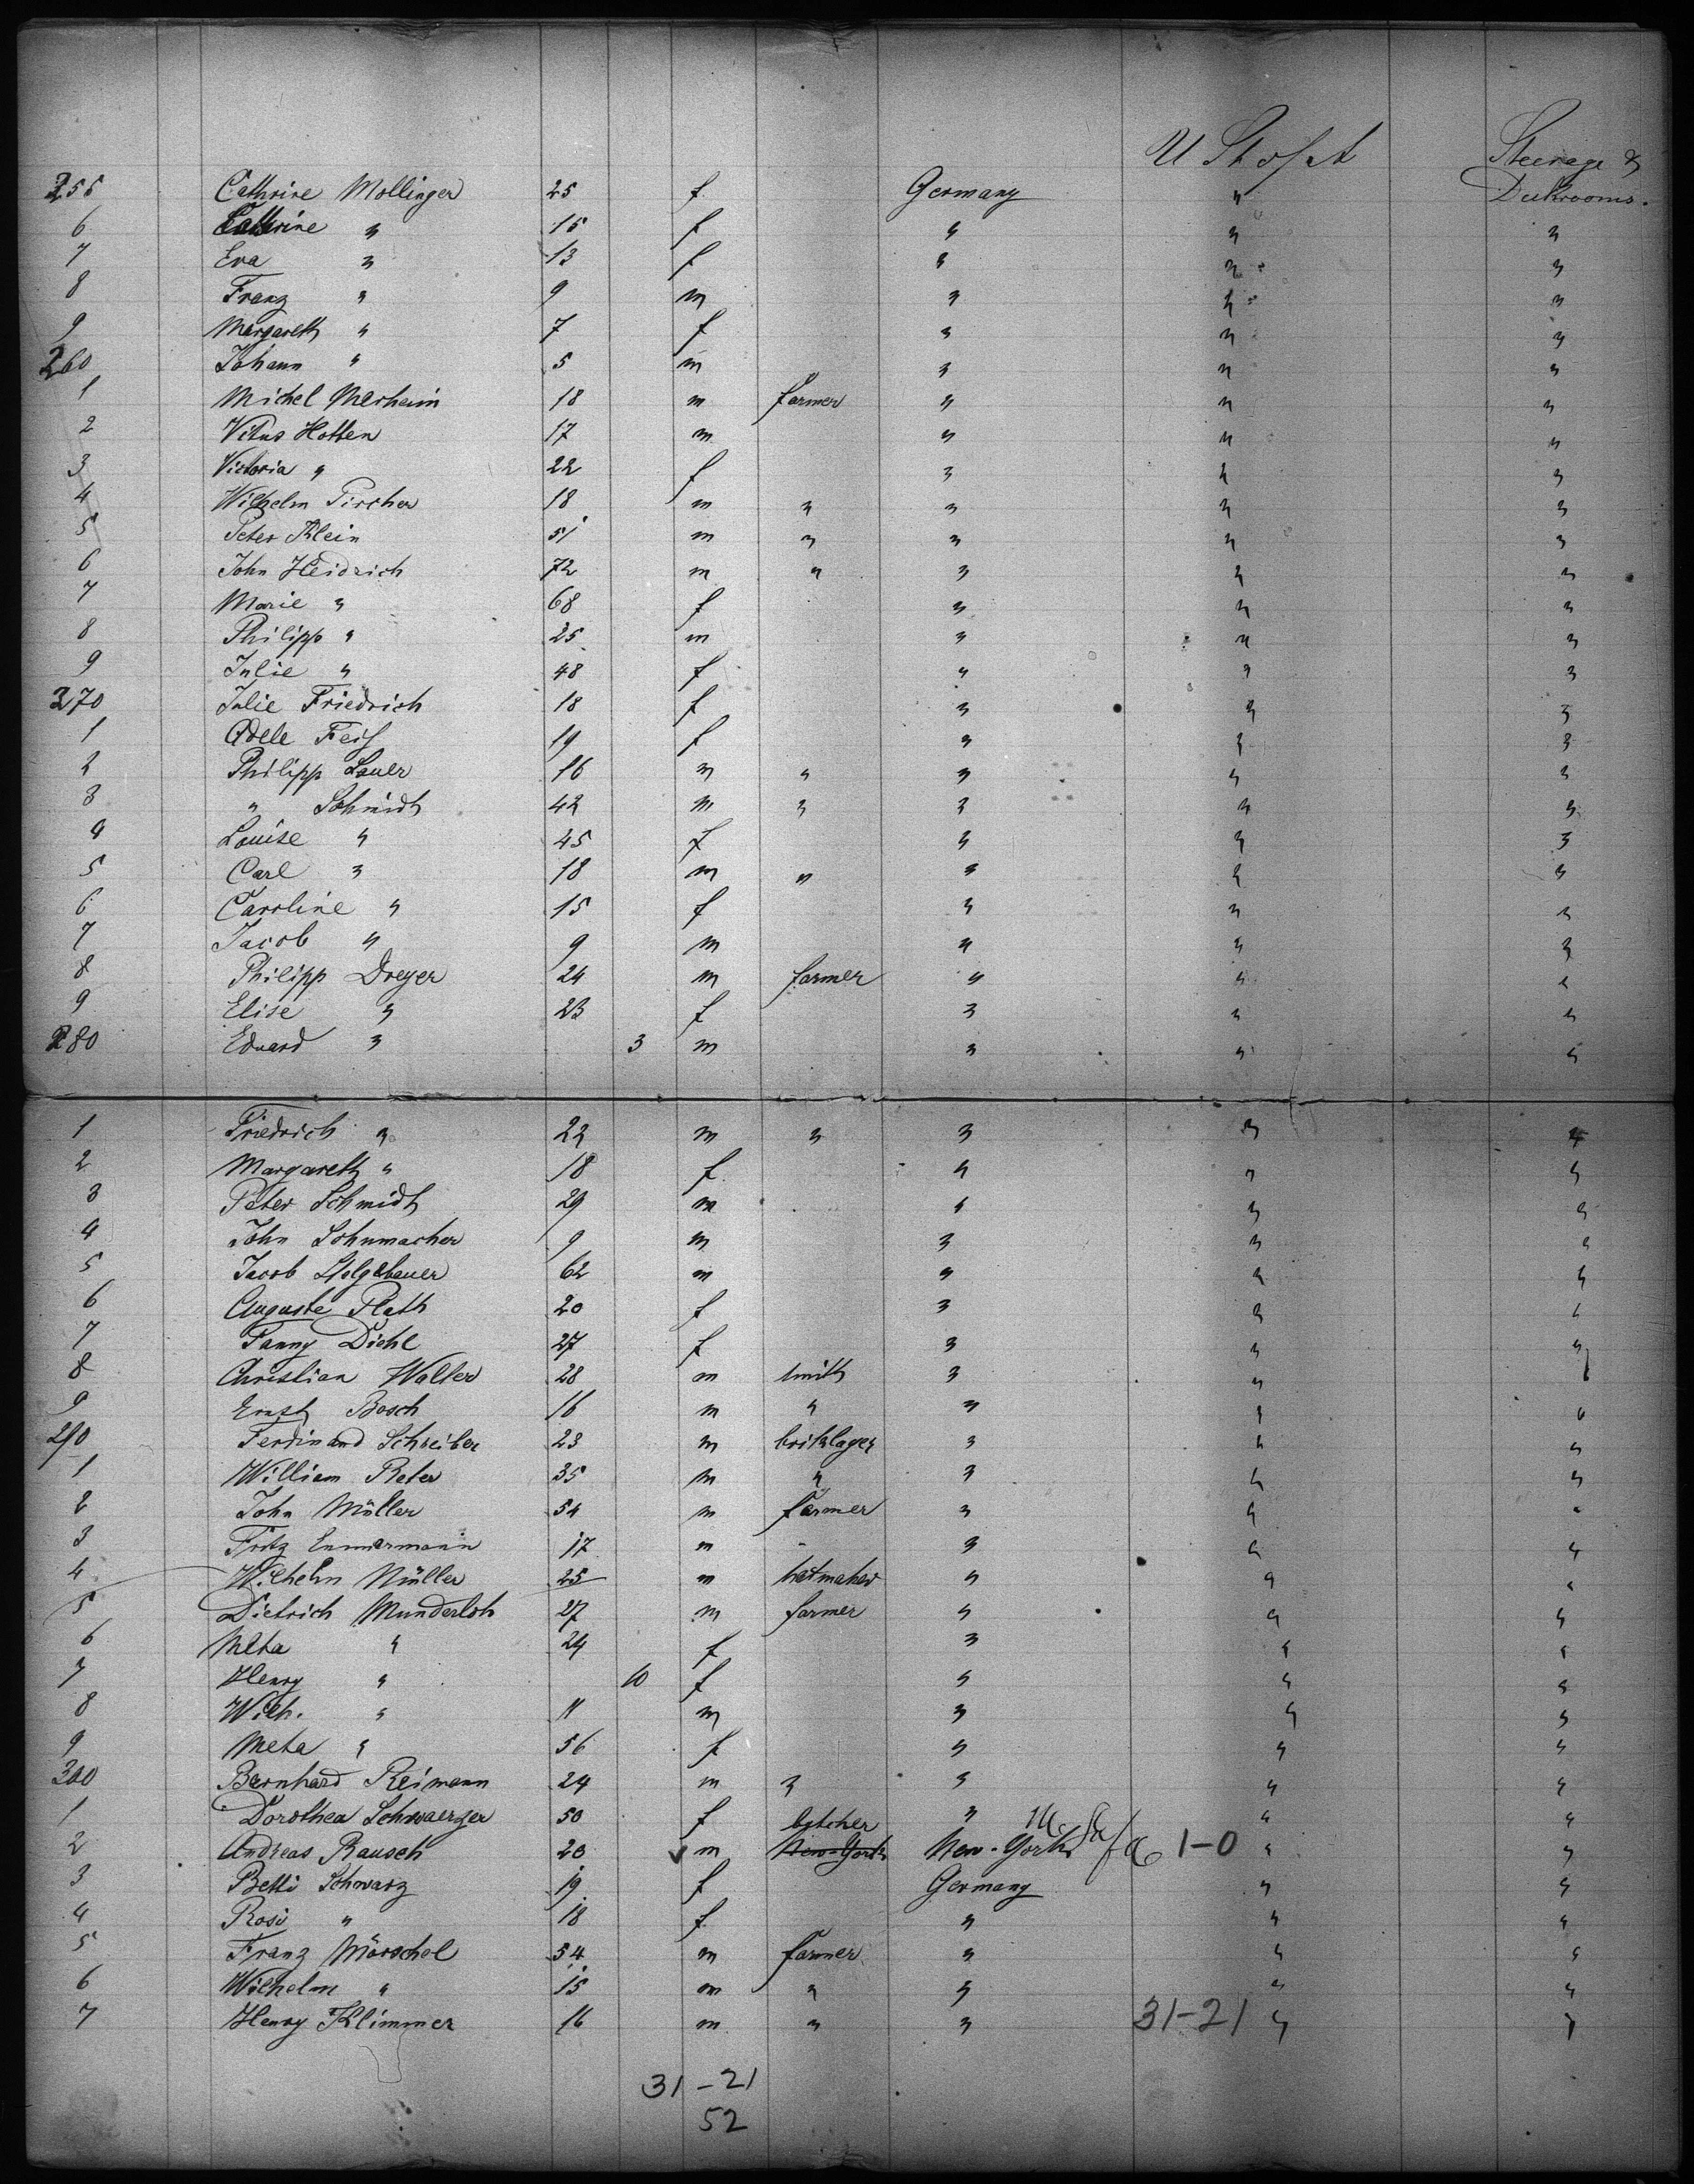 U St of A Steerage &
255 Cathrine Mollinger 25 f Germany " Deckrooms.
6 Cathrine " 15 f " " "
7 Eva " 13 f " " "
8 Franz " 9 m " " "
9 Margareth " 7 f " " "
260 Johann " 5 m " " "
1 Michel Merheim 18 m farmer " " "
2 Vitus Hotten 17 m " " "
3 Victoria " 22 f " " "
4 Wilhelm Pircher 18 m " " " "
5 Peter Klein 51 m " " " "
6 John Heidrich 72 m " " " "
7 Marie " 68 f " " "
8 Philipp " 25 m " " "
9 Julie " 48 f " " "
270 Julie Friedrich 18 f " " "
1 Adele Feiß 19 f " " "
2 Philipp Lauer 16 m " " " "
3 " Schmidt 42 m " " " "
4 Louise " 45 f " " "
5 Carl " 18 m " " " "
6 Caroline " 15 f " " "
7 Jacob " 9 m " " "
8 Philipp Dreyer 24 m farmer " " "
9 Elise " 23 f " " "
280 Eduard " 3 m " " "
1 Friedrich " 22 m " " " "
2 Margareth " 18 f " " "
3 Peter Schmidt 29 m " " "
4 John Schumacher 9 m " " "
5 Jacob 62 m " " "
6 Auguste Plath 20 f " " "
7 Fanny Diehl 27 f " " "
8 Christian Walter 28 m smith " " "
9 Ernst Bosch 16 m " " " "
290 Ferdinand Schreiber 23 m briklayer " " "
1 William Reter 35 m " " " "
2 John Möller 54 m farmer " " "
3 Fritz Emmermann 17 m " " " "
4 Wilhelm Müller 25 m hatmaker " " "
5 Dietrich Munderloh 27 m farmer " " "
6 Meta " 24 f " " "
7 Henry " 10 f " " "
8 Wilh. " 11 m " " "
9 Meta " 56 f " " "
300 Bernhard Reimann 24 m " " " "
1 Dorothea Schwaerzer 50 f " " "
butcher
2 Andreas Rausch 20 m New-York New-York 1-0 " "
3 Betti Schwarz 19 f Germany " "
4 Rosi " 18 f " " "
5 Franz Mörschel 54 m farmer " " "
6 Wilhelm " 15 m " " " "
7 Henry Klimmer 16 m " " 31-21 " "
31-21
52